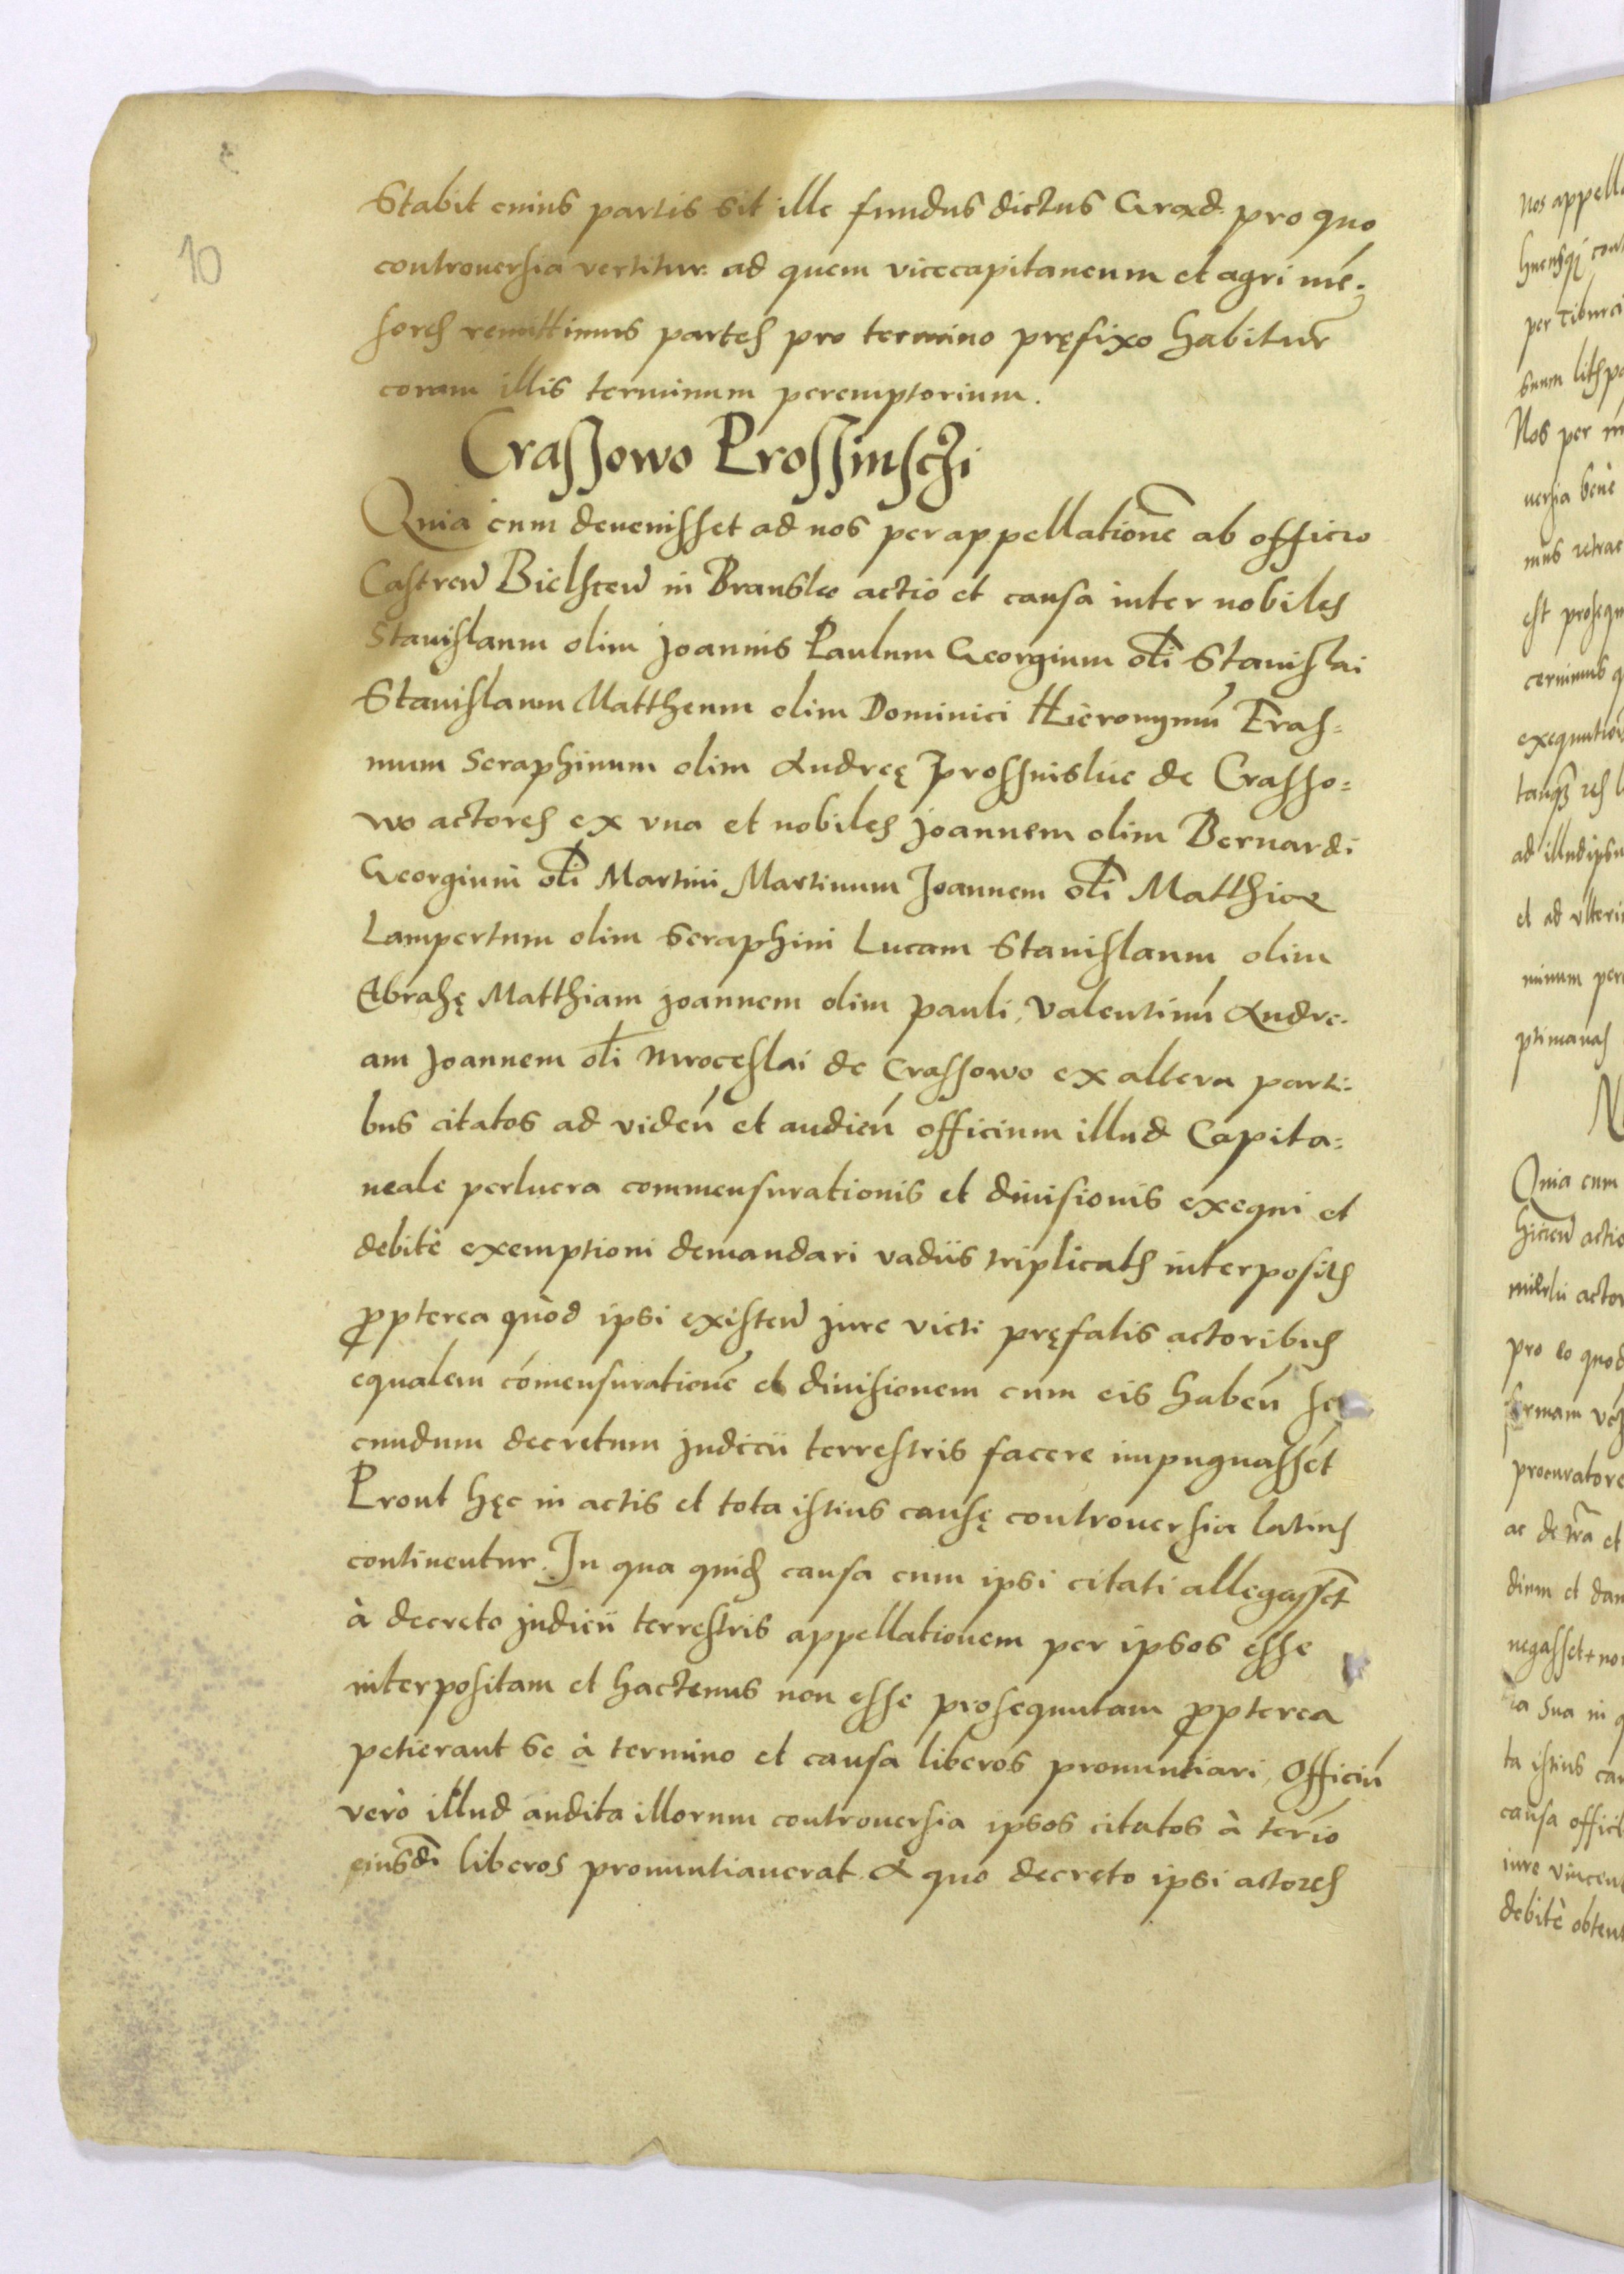 10
Stabit cuius partis sit ille fundus dictus Grąd pro quo
controuersia vertitur ad quem vicecapitaneum et agri mē-
sores remittimus partes pro termino pręfixo habitur̃
coram illis terminum peremptorium.
Crassowo Prossinsczi
Quia cum deuenisset ad nos per appellationē ab officio
Castreñ Bielsceñ in Bransko actio et causa inter nobiles
Stanislaum olim Joannis Paulum Georgium oli Stanislai
Stanislaum Mattheum olim Dominici Hieronymū Eras=
mum Seraphinum olim Andreę de Crasso=
wo actores ex vna et nobiles Joannem olim Bernardi
Georgium oli Martini Martinum Joannem oli Matthiae
Lampertum olim Seraphini Lucam Stanislaum olim
Abrahę Matthiam Joannem olim Pauli, Valentinū Andre-
am Joannem oli Mroceslai de Crassowo ex altera parti-
bus citatos ad videñ et audieñ officium illud Capita=
neale perlucra commensurationis et diuisionis exequi et
debitè exemptioni demandari vadiis triplicatis interpositis
propterea quòd ipsi existeñ jure victi pręfatis actoribus
equalem cōmensurationē et diuisionem cum eis habeñ se
cundum decretum judicii terrestris facere impugnassēt
Prout hęc in actis et tota istius causę controuersia latius
continentur. In qua quidem causa cum ipsi citati allegassēt
à decreto judicii terrestris appellationem per ipsos esse
interpositam et hactenus non esse prosequutam propterea
petierant se à termino et causa liberos pronuntiari, Officiū
verò illud audita illorum controuersia ipsos citatos à termīo
eiusdī liberos pronuntiauerat. A quo decreto ipsi actores